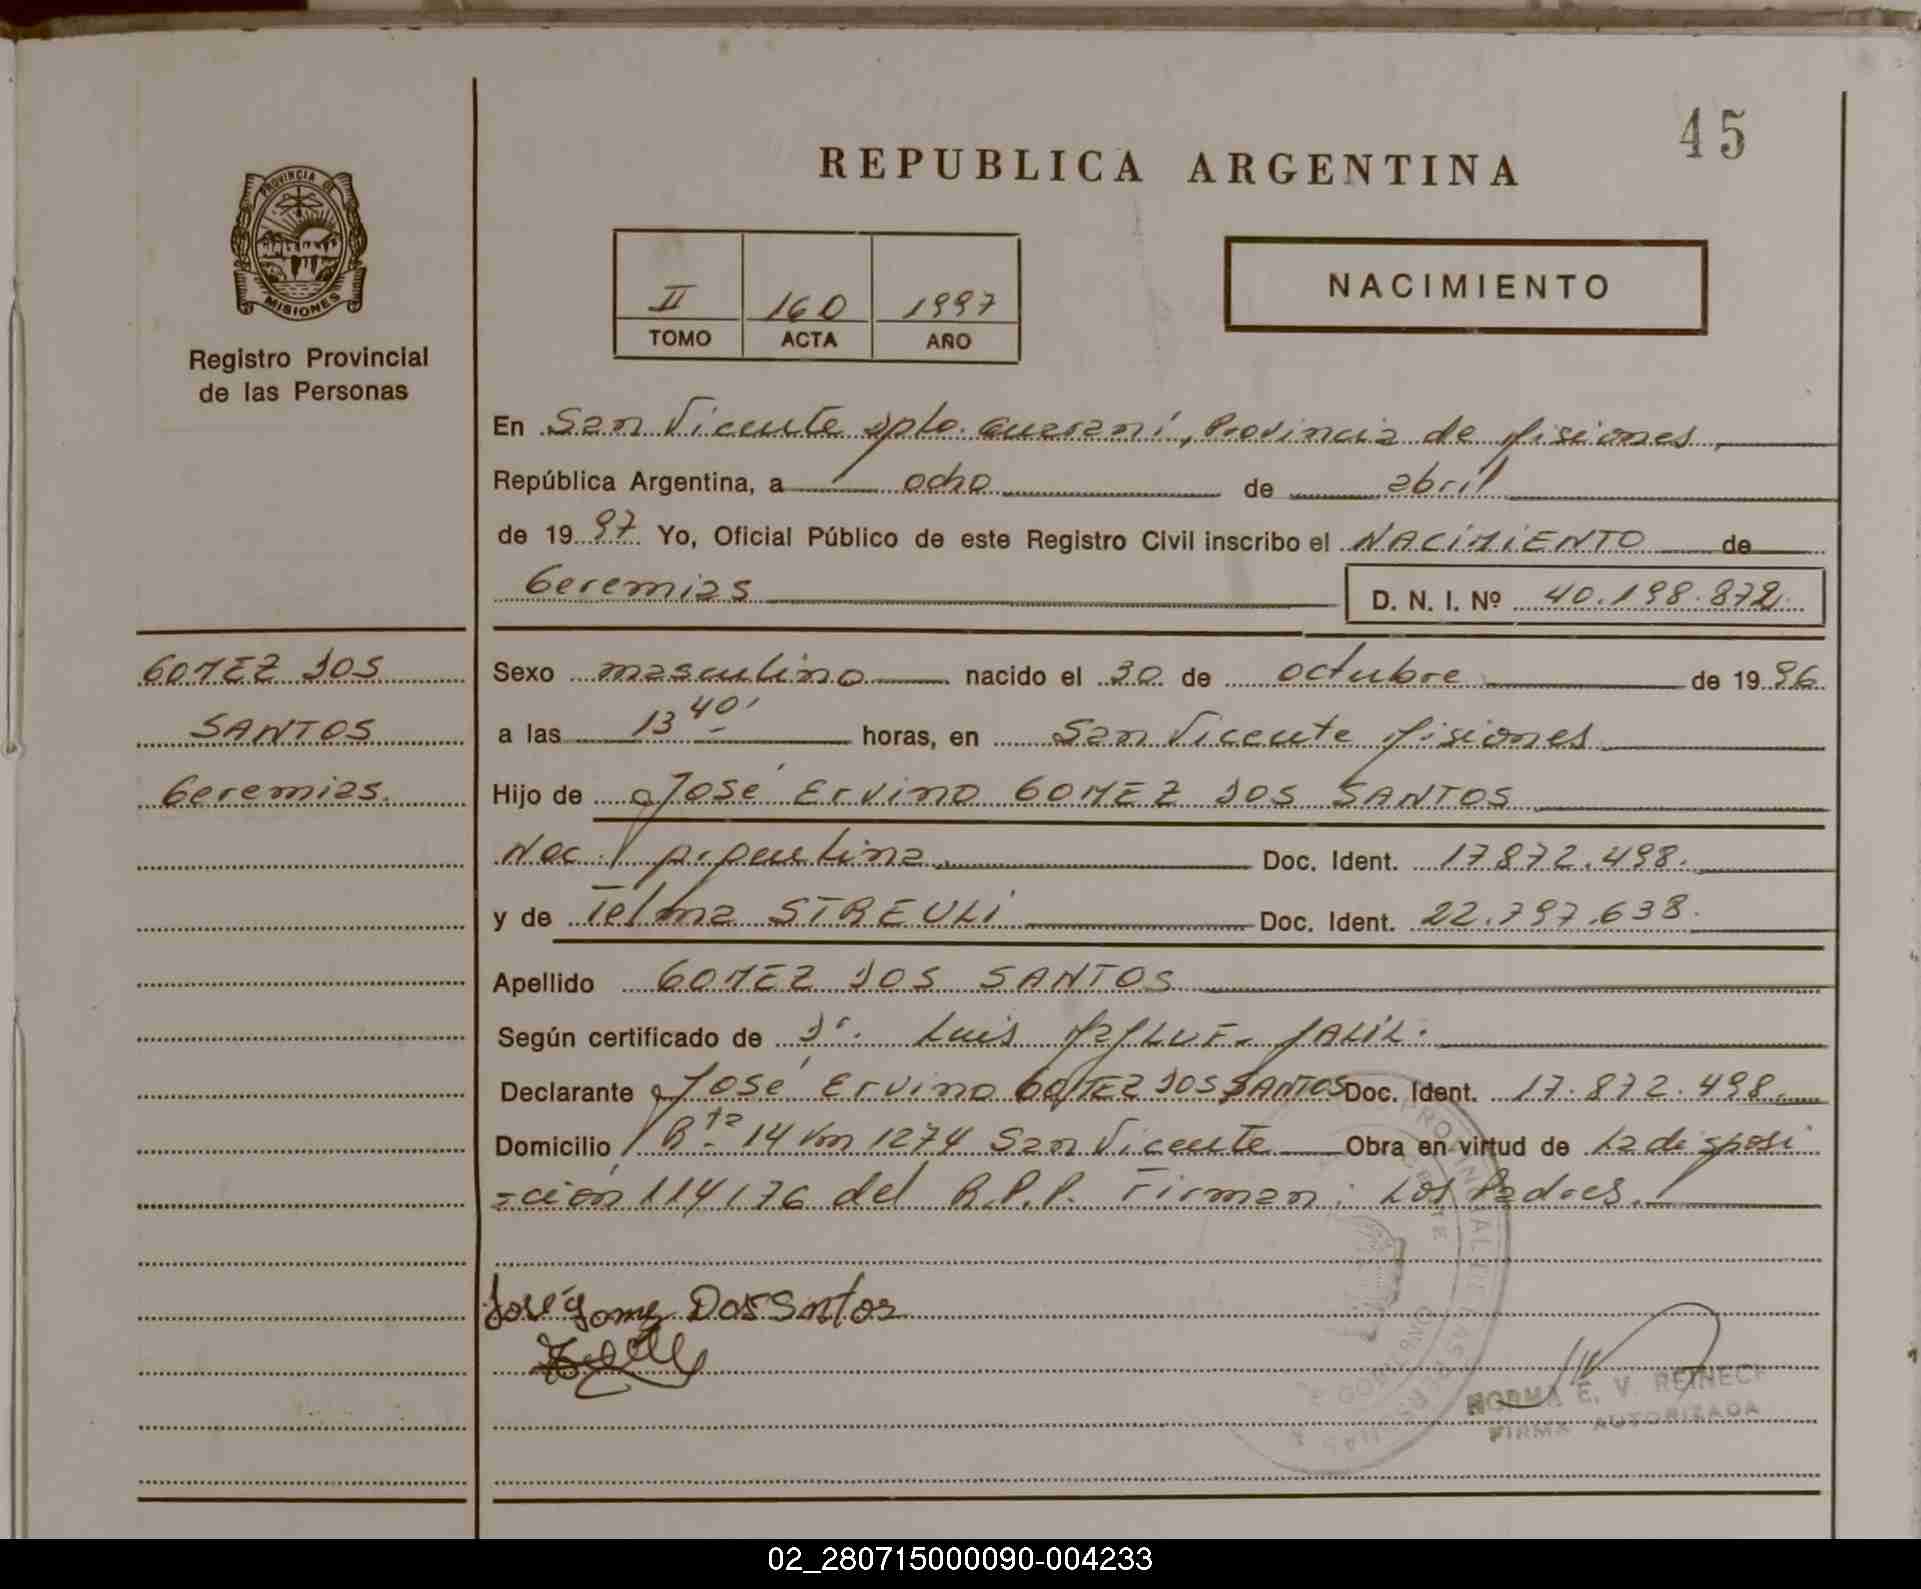 45
REPUBLICA ARGENTINA
PROVINCIA DE
MISIONES
Registro Provincial
de las Personas
II 160 1997
TOMO ACTA AÑO
NACIMIENTO
En San Vicente dpto. Guaraní, Provincia de Misiones,
República Argentina, a ocho de abril
de 1997 Yo, Oficial Público de este Registro Civil inscribo el NACIMIENTO de
Geremias D. N. I. Nº 40.198.872.
GOMEZ DOS
SANTOS
Geremias.
Sexo masculino nacido el 30 de octubre de 1996
a las 13 40' horas, en San Vicente Misiones
Hijo de José Ervino GOMEZ DOS SANTOS
Nac. Argentina. Doc. Ident. 17.872.498.
y de Telma STREULI Doc. Ident. 22.797.638.
Apellido GOMEZ DOS SANTOS
Según certificado de Dr. Luis JALIL.
Declarante José Ervino GOMEZ DOS SANTOS Doc. Ident. 17.872.498.
Domicilio Rta 14 Km 1274 San Vicente Obra en virtud de La disposi
=ción 114/76 del R.P.P. Firman: Los Padres.
José Gomez Dos Santos
NORMA E. V. REINECK
FIRMA AUTORIZADA
02_280715000090-004233